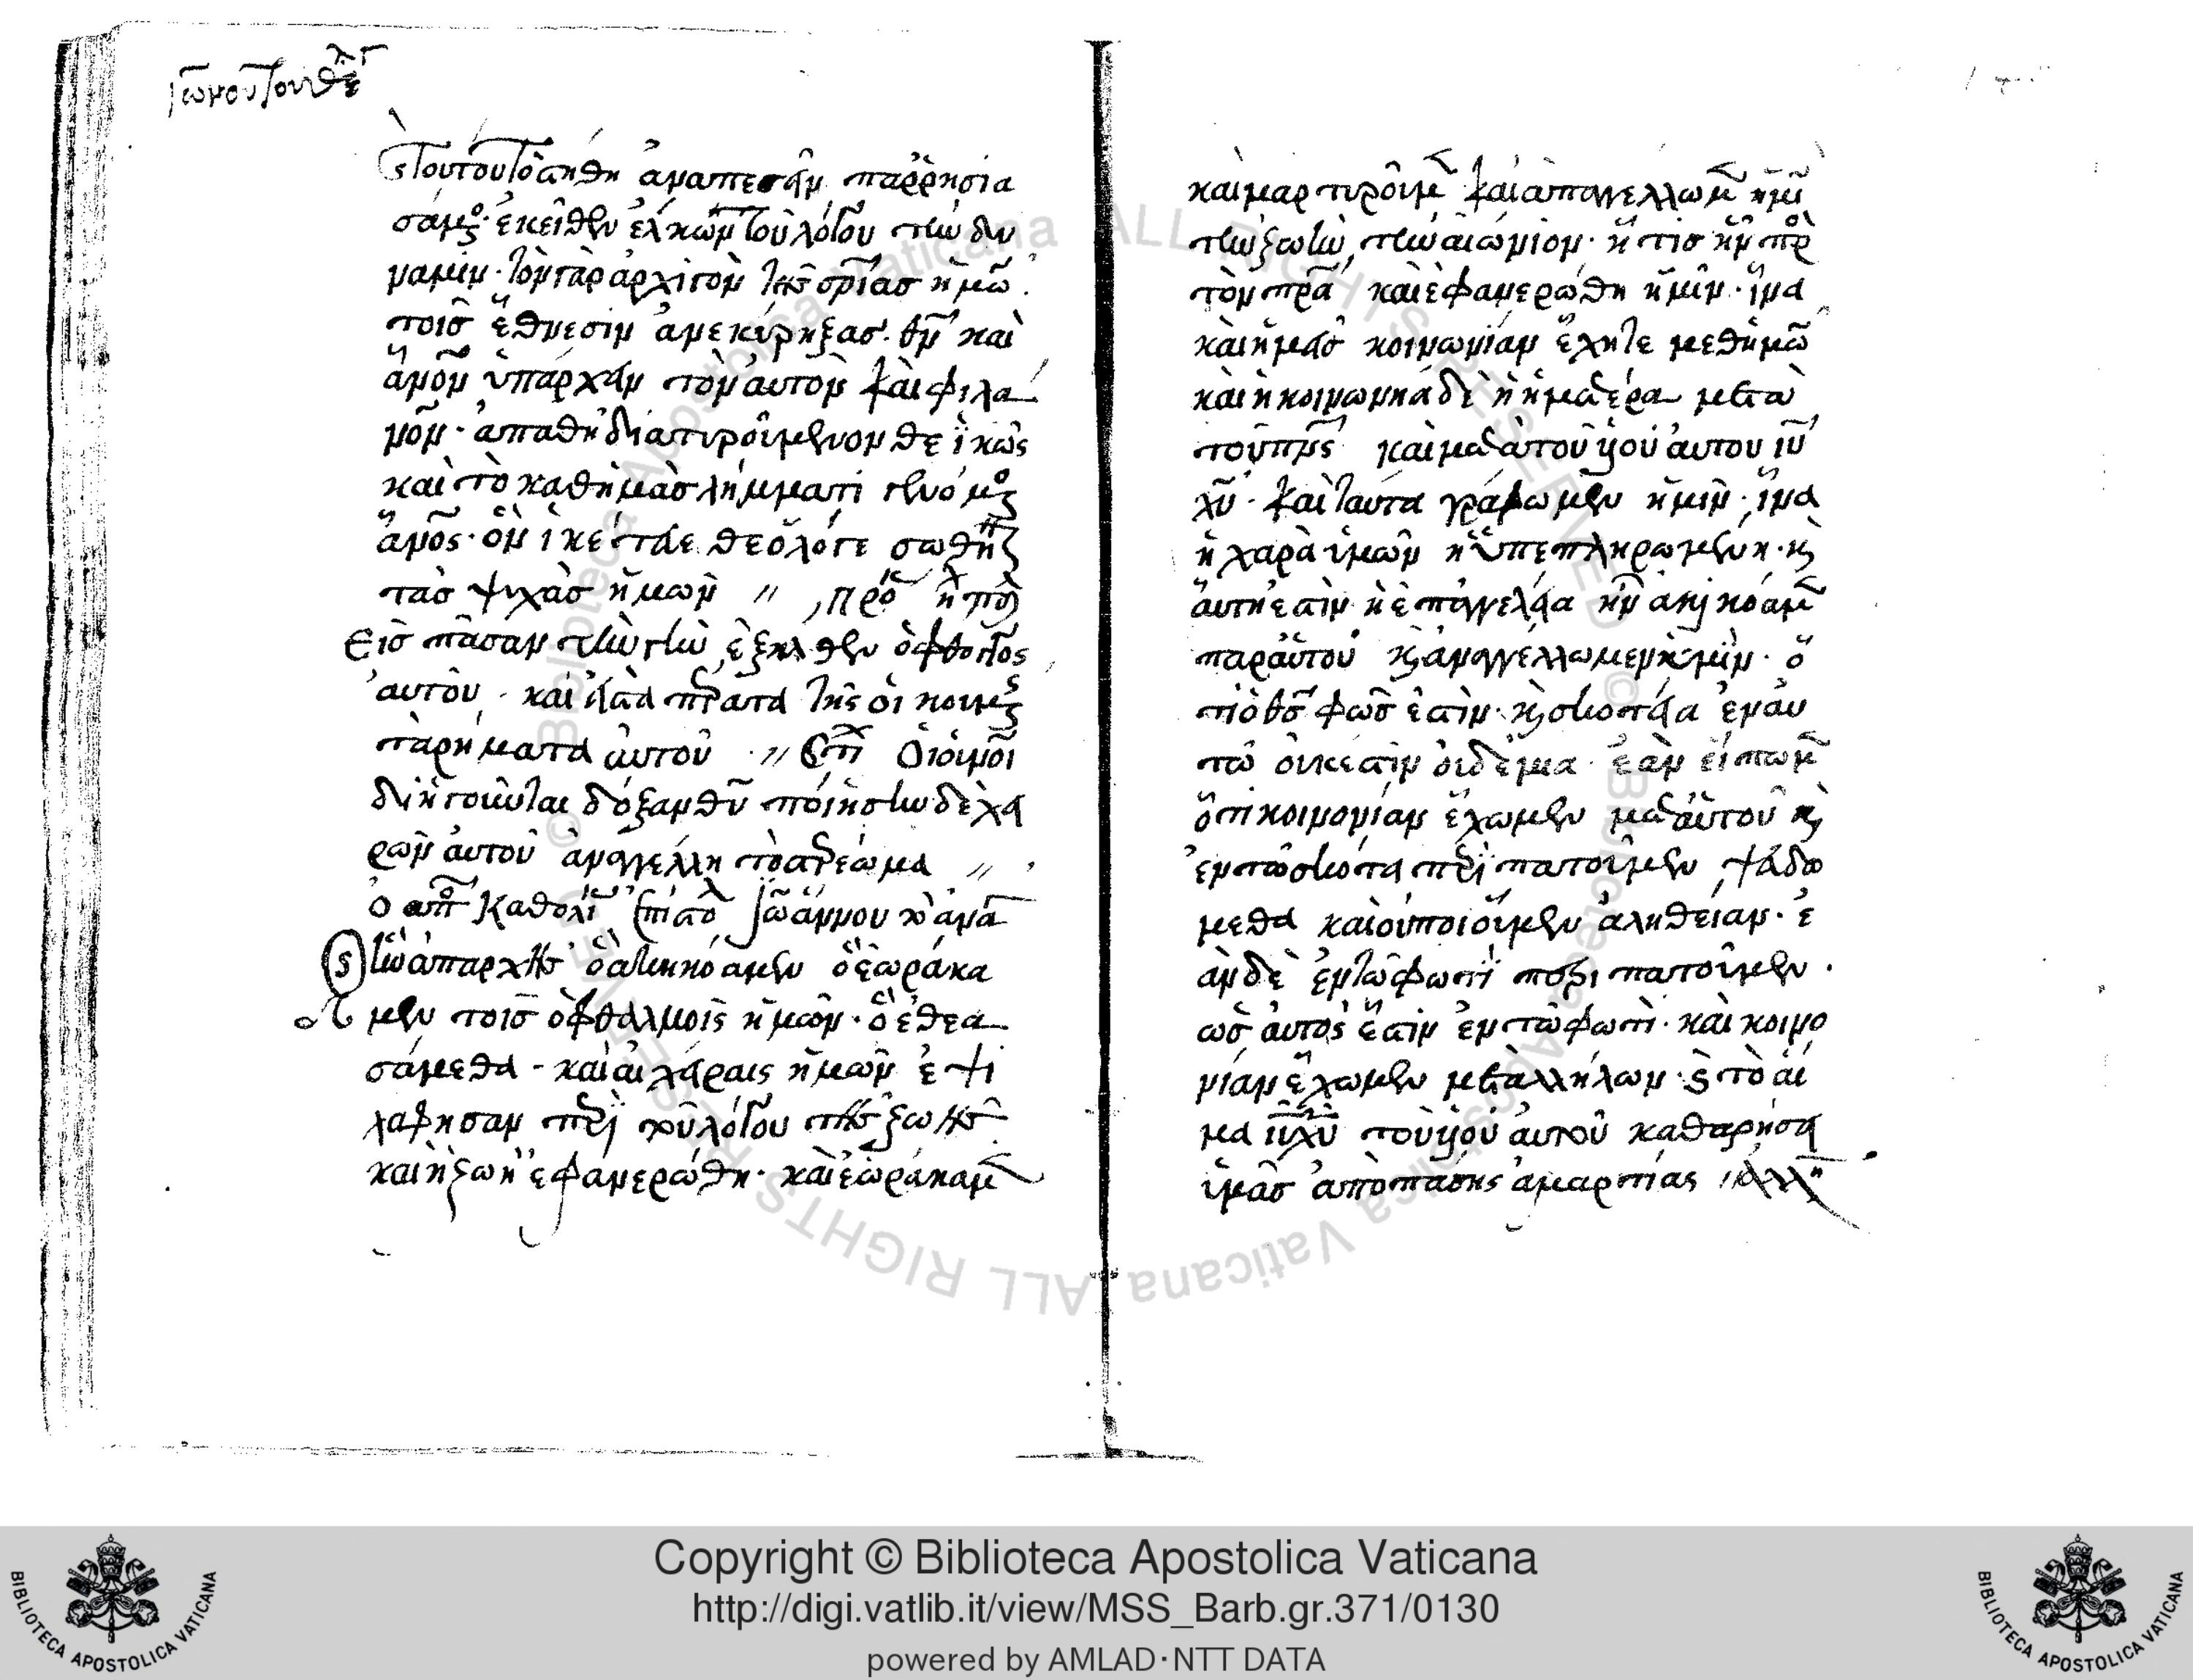 Ἰωάννου τοῦ θε
στου τουτο στηθη ἀναπεσὼν παρρησια
σάμενος· ἐκεῖθεν ἑλκων τοῦ λόγου την δυ
ναμιν· τὸν γὰρ ἀρχιγὸν της σριας ἡμῶν
τοῖς ἔθνεσιν ἀνεκύρηξας· θν καὶ
ἄνον ὑπάρχων τὸν αυτὸν και φιλα
νον· ἀπαθη διατυροῦμενον θεϊκῶς
καὶ τὸ καθημὰς λήμματι γενόμενος
ἄνος· ὃν ἱκέτευε θεολόγε σωθῆναι
τὰς ψιχὰς ἡμῶν
Εἰς πᾶσαν την γην ἐξηλθεν ὁ φθογγος
αυτοῦ, και εις τα πέρατα της οἰκουμένης
τὰ ρήματα αὐτοῦ Στι Οἱ οὐνοι
διηγοῦνται δόξαν θυ ποίησιν δὲ χει
ρῶν αὐτοῦ ἀναγγέλλη τὸ στερέωμα
ὁ απο Καθολι Επιστο Ιωάννου το ἀνα
ην ἀπαρχης ὃ ακηκόαμεν ὃ ἑωράκα
μεν τοῖς ὀφθαλμοῖς ἡμῶν· ὃ ἐθεα
σάμεθα - και αἱ χείραις ἡμῶν ἐψι
λαφησαν περὶ του λόγου της ζωης
και ἡ ζωὴ ἐφανερώθη· και ἑωράκαμεν
και μαρτυροῦμεν και απαγγελλωμεν ημιν
την ζωην, την αἰώνιον· ἥτις ἦν προς
τὸν πρα και ἐφανερώθη ἡμῖν· ἵνα
και ημας κοινωνίαν ἔχητε μεθημῶν
και η κοινωνηα δὲ ἡ ἡμετέρα μετα
τοῦ πρς και μετὰ τοῦ υἱοῦ αυτου ιυ
χυ· και ταυτα γράφωμεν ημιν· ἵνα
ἡ χαρὰ ὑμῶν ἡ πεπληρωμενη· κ
αὕτη εστὶν ἡ ἐπαγγελεία ην ακηκόαμεν
παραὐτοῦ κ ἀναγγέλλωμεν ημιν· ὅ
τι ὁ θς φῶς ἐστὶν· κ σκοτεία ἐναυ
τῶ οὐκεστὶν οὐδεμια· ἐὰν εἴπωμεν
ὅτι κοινονίαν ἔχωμεν μεταὐτοῦ κ
ἐν τῶ σκότη περιπατοῦμεν, ψεύδω
μεθα και οὐ ποιοῦμεν ἀληθείαν· ἐ
ὰν δὲ ἐν τῶ φωτὶ περιπατοῦμεν·
ως αυτος ἐστὶν ἐν τῶ φωτὶ· και κοινο
νίαν ἔχωμεν μεταλλήλων· κ τὸ αἷ
μα ιυ χυ τοῦ υἱοῦ αυτοῦ καθαρήσει
ἱμᾶς ἀπὸ πάσης ἁμαρτίας
Copyright © Biblioteca Apostolica Vaticana
http://digi.vatlib.it/view/MSS_Barb.gr.371/0130
powered by AMLAD·NTT DATA
BIBLIOTECA APOSTOLICA VATICANA
BIBLIOTECA APOSTOLICA VATICANA